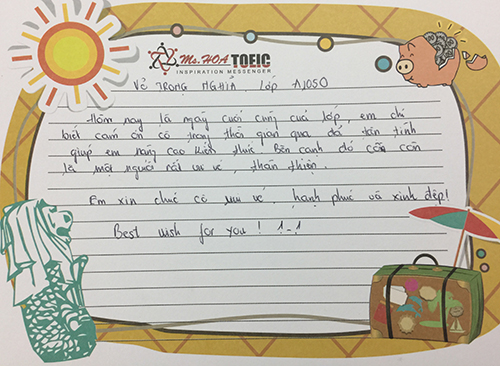 Ms. HOA TOEIC
INSPIRATION MESSENGER
VÕ TRỌNG NGHĨA LỚP A1050
Hôm nay là ngày cuối cùng của lớp, em chỉ
biết cảm ơn cô trong thời gian qua đã tận tình
giúp em nâng cao kiến thức. Bên cạnh đó cô còn
là một người rất vui vẻ, thân thiện.
Em xin chúc cô vui vẻ, hạnh phúc và xinh đẹp!
Best wish for you! 1-1